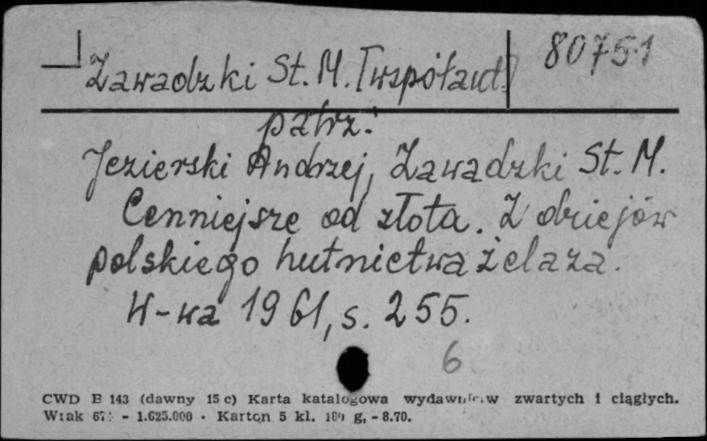 80751
Zawadzki St. M. [współaut.]
patrz:
Jezierski Andrzej, Zawadzki St. M.
Cenniejsze od złota. Z dziejów
polskiego hutnictwa żelaza.
W-wa 1961, s. 255.
6
CWD E 143 (dawny 15 c) Karta katalogowa wydawnictw zwartych i ciągłych.
- 1.625.000 · Karton 5 kl. g, - 8.70.